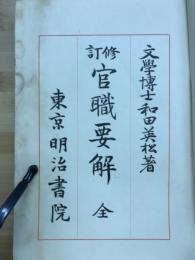 文學博士和田英松著
修訂
官職要解 全
東京 明治書院